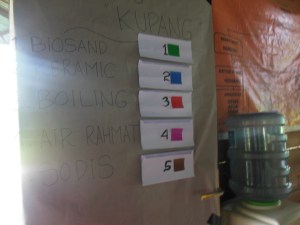 KUPANG
BIOSAND 1
CERAMIC 2
BOILING 3
AIR RAHMAT 4
SODIS 5